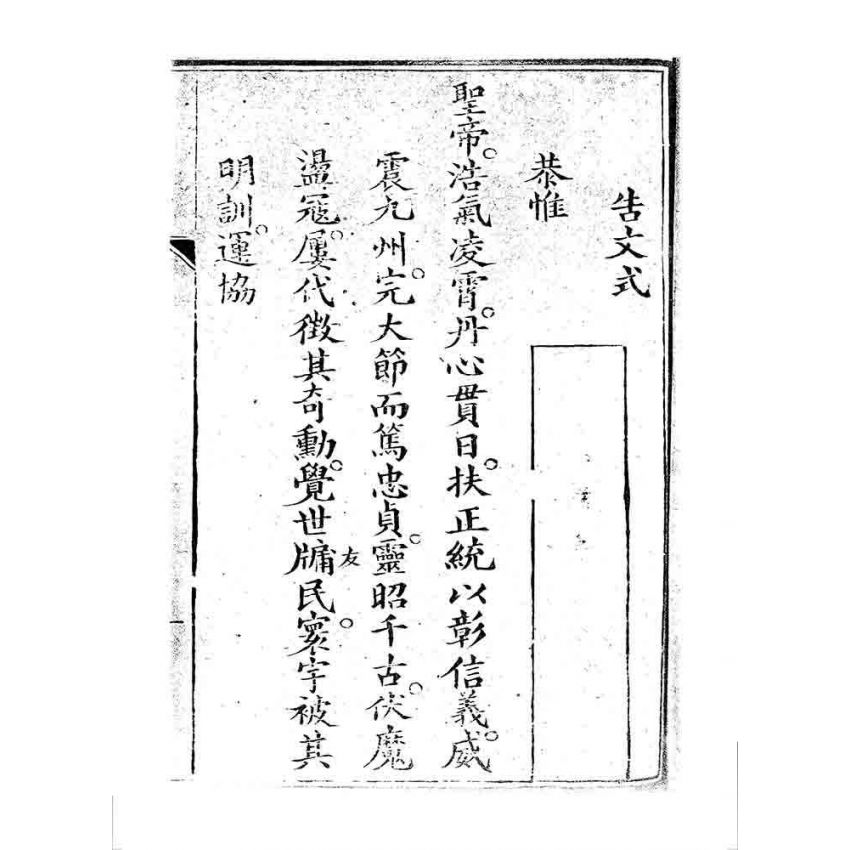 告文式
恭惟
聖帝。浩氣凌霄。丹心貫日。扶正統以彰信義。威
震九州。完大節而篤忠貞。靈昭千古。伏魔
盪寇。屢代徵其奇勳。覺世牖友民。寰宇被其
明訓。運協